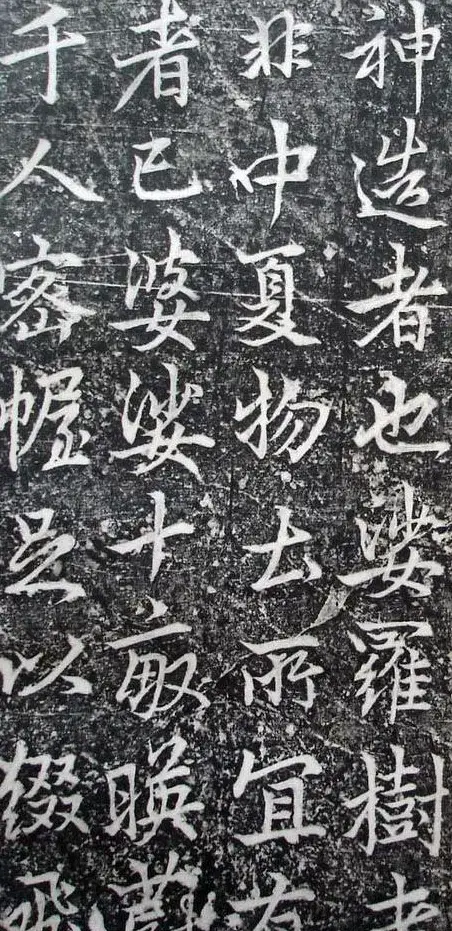 神造者也娑羅樹者
非中夏物土所宜有
者已婆娑十畝暎蔚
千人密幄足以綴飛